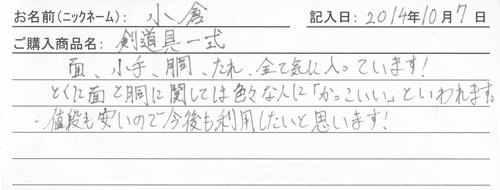 お名前(ニックネーム): 小倉 記入日: 2014年10月7日
ご購入商品名: 剣道具一式
面、小手、胴、たれ、全て気に入っています!
とくに面と胴に関しては色々な人に「かっこいい」といわれます。
・値段も安いので今後も利用したいと思います!